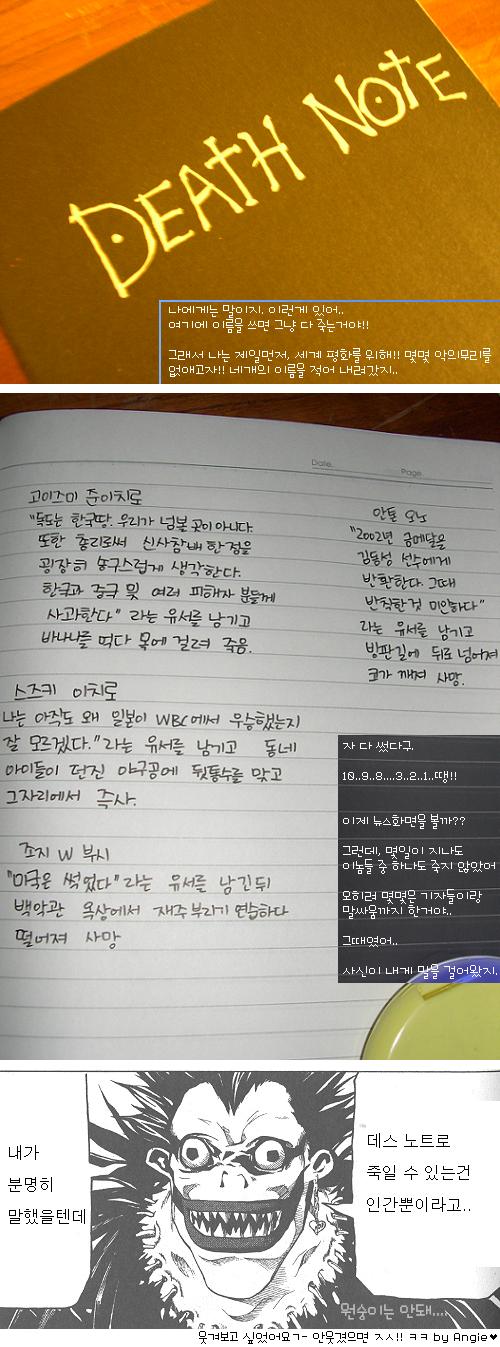 DEATH NOTE
나에게는 말이지. 이런게 있어..
여기에 이름을 쓰면 그냥 다 죽는거야!!
그래서 나는 제일먼저, 세계 평화를 위해!! 몇몇 악의무리를
없애고자!! 네개의 이름을 적어 내려갔지..
Date.
Page
고이즈미 준이치로
"독도는 한국땅. 우리가 넘볼 곳이 아니다.
또한 총리로써 신사참배 한 점을
굉장히 송구스럽게 생각한다.
한국과 중국 및 여러 피해자 분들께
사과한다" 라는 유서를 남기고
바나나를 먹다 목에 걸려 죽음.
안톤 오노
"2002년 금메달을
김동성 선수에게
반환한다. 그때
반칙한것 미안하다"
라는 유서를 남기고
빙판길에 뒤로 넘어져
코가 깨져 사망.
스즈키 이치로
나는 아직도 왜 일본이 WBC에서 우승했는지
잘 모르겠다." 라는 유서를 남기고 동네
아이들이 던진 야구공에 뒷통수를 맞고
그자리에서 즉사.
죠지 W 부시
"미국은 썩었다" 라는 유서를 남긴뒤
백악관 옥상에서 재주부리기 연습하다
떨어져 사망
자 다 썼다구.
10..9..8....3..2..1..땡!!
이제 뉴스화면을 볼까??
그런데, 몇일이 지나도
이놈들 중 하나도 죽지 않았어
모히려 몇몇은 기자들이랑
말싸움까지 한거야..
그때였어..
사신이 내게 말을 걸어왔지.
내가
분명히
말했을텐데
데스 노트로
죽일 수 있는건
인간뿐이라고..
원숭이는 안돼....
웃겨보고 싶었어요ㄱ- 안웃겼으면 ㅈㅅ!! ㅋㅋ by Angie♥